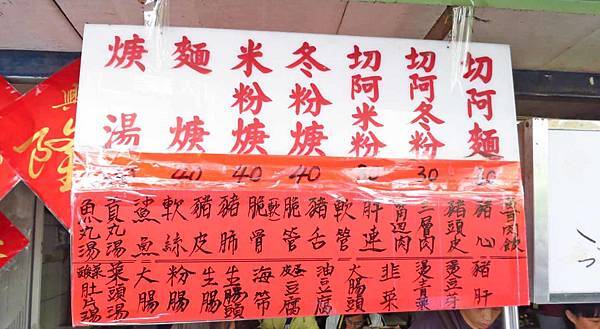 切阿麵
切阿冬粉 30
切阿米粉
冬粉焿 40
米粉焿 40
麵焿 40
焿湯
豬心
豬頭皮
三層肉
肝連
軟管
豬舌
脆管
脆骨
豬肺
豬皮
軟絲
鯊魚
貢丸湯
魚丸湯
豬肝
燙豆牙
燙青菜
韭菜
大腸頭
油豆腐
皮蛋豆腐
海帶
生腸頭
生腸
粉腸
大腸
隆
興